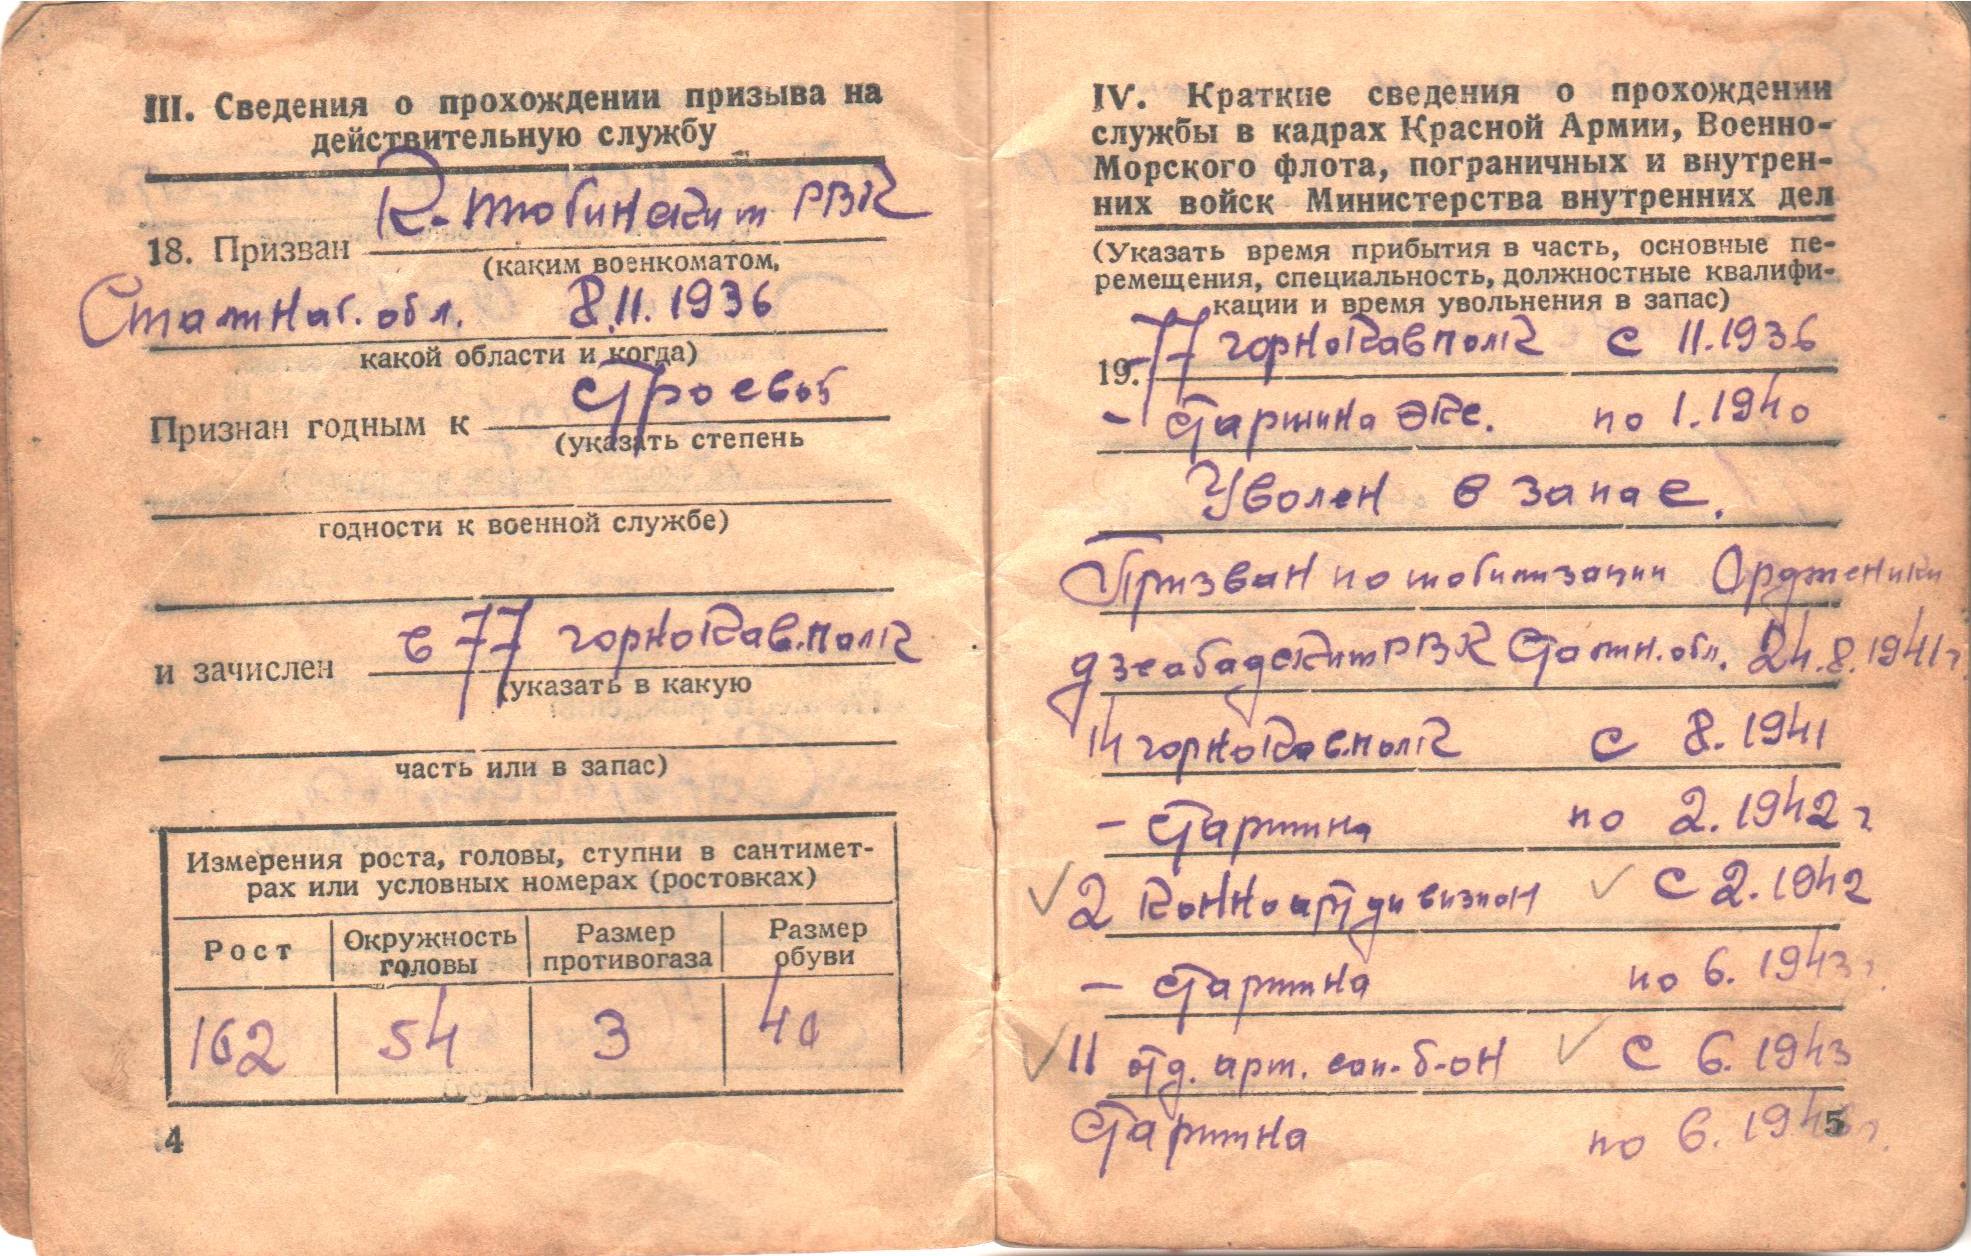 III. Сведения о прохождении призыва на
действительную службу
К-тюбинским РВК
18. Призван
(каким военкоматом,
Сталинаб. обл. 8.11.1936
какой области и когда)
строевой
Признан годным к
(указать степень
годности к военной службе)
в 77 горнокав.полк
и зачислен
(указать в какую
часть или в запас)
Измерения роста, головы, ступни в сантимет-
рах или условных номерах (ростовках)
Рост Окружность головы Размер противогаза Размер обуви
162 54 3 40
4
IV. Краткие сведения о прохождении
службы в кадрах Красной Армии, Военно-
Морского флота, пограничных и внутрен-
них войск Министерства внутренних дел
(Указать время прибытия в часть, основные пе-
ремещения, специальность, должностные квалифи-
кации и время увольнения в запас)
19. 77 горнокавполк с 11.1936
- старшина эск. по 1.1940
Уволен в запас.
Призван по мобилизации Орджоники
дзеабадским РВК Сталин. обл. 24.8.1941г
14 горнокав.полк с 8.1941
- старшина по 2.1942г
2 конноартдивизион с 2.1942
- старшина по 6.1943г
11 отд. арт. сап. б-он с 6.1943
старшина по 6.194
5